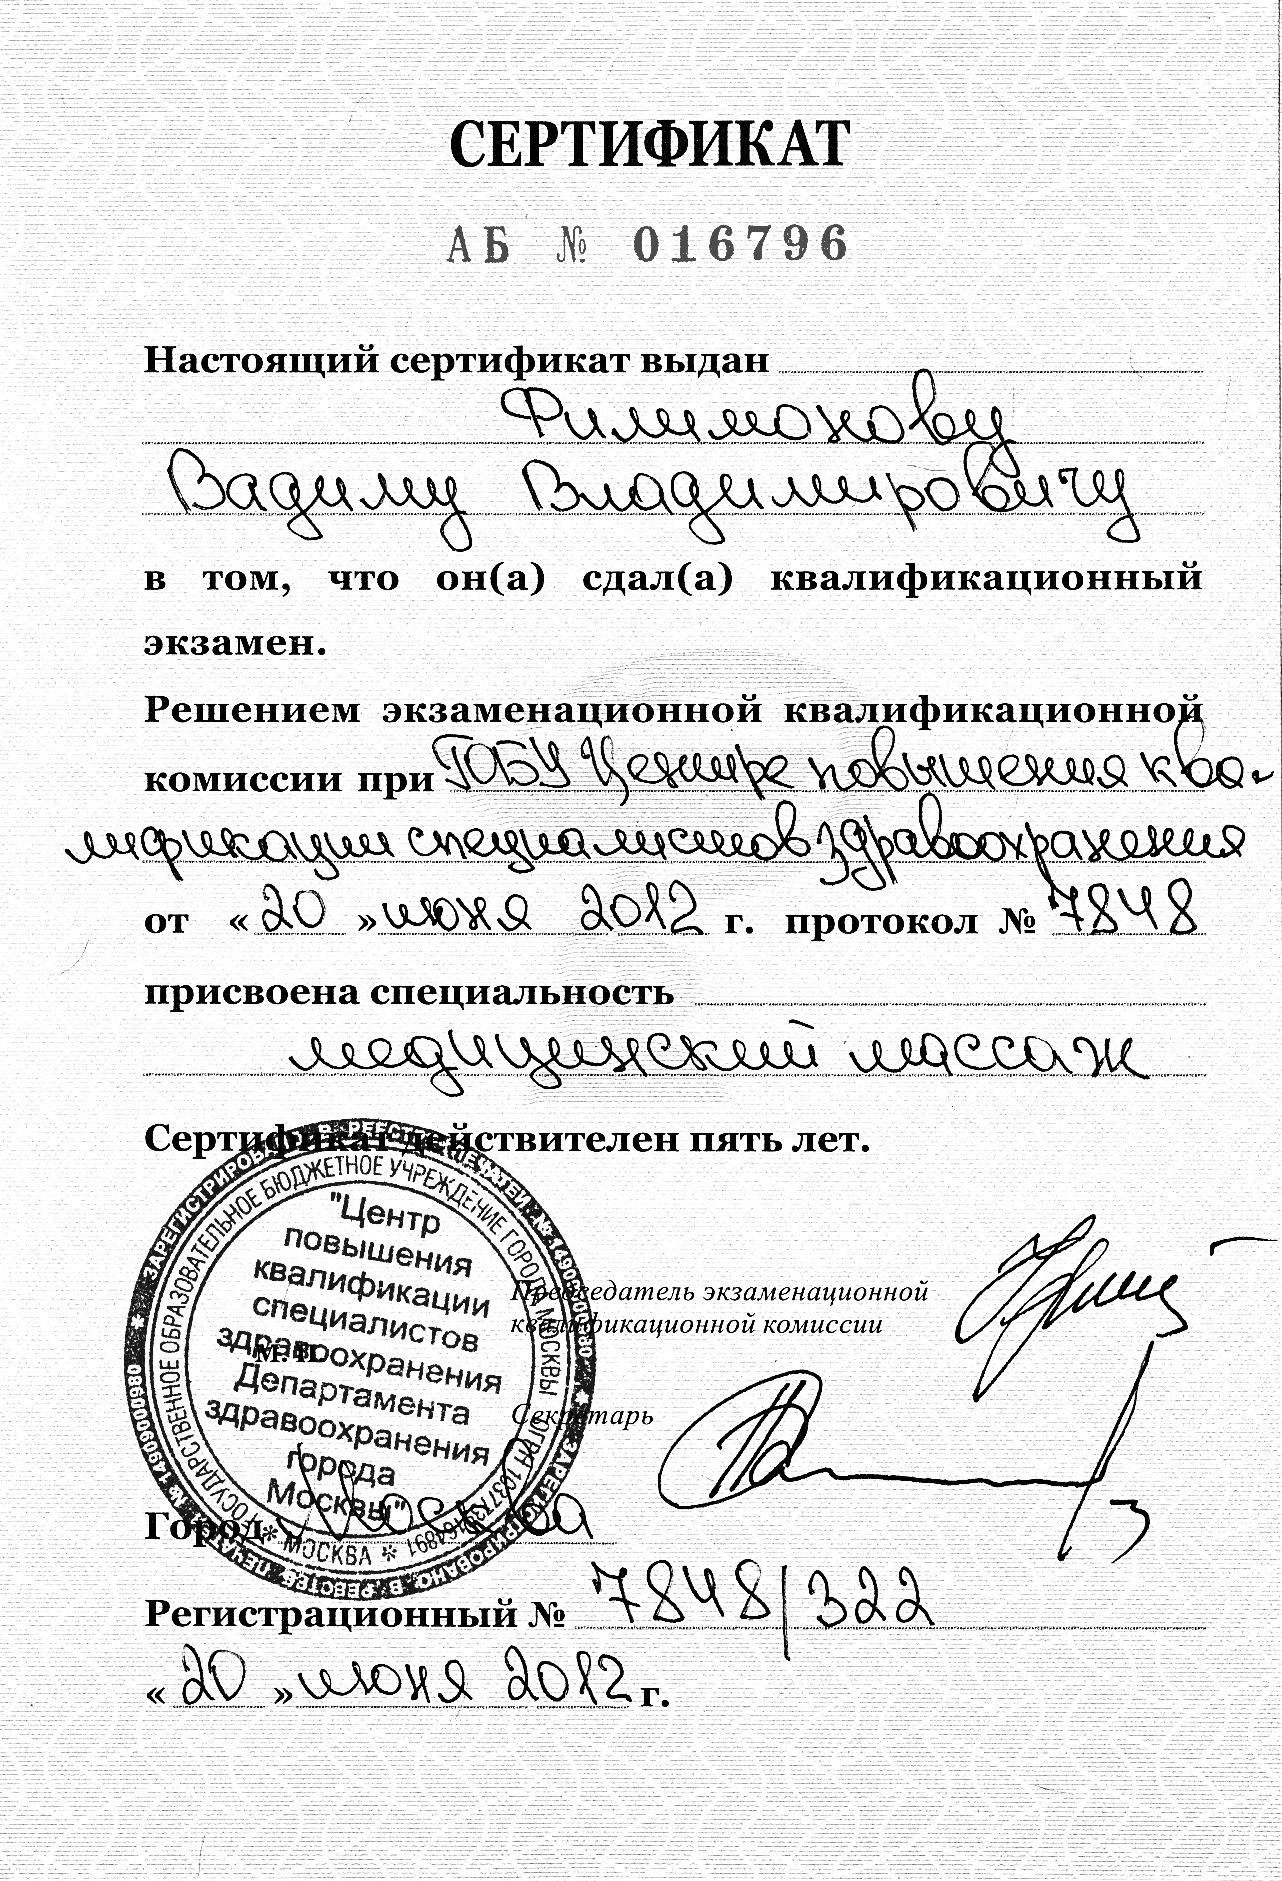 СЕРТИФИКАТ
АБ № 016796
Настоящий сертификат выдан
Филимонову
Вадиму Владимировичу
в том, что он(а) сдал(а) квалификационный
экзамен.
Решением экзаменационной квалификационной
комиссии при ГОБУ Центре повышения ква-
лификации специалистов здравоохранения
от «20» июня 2012 г. протокол № 7848
присвоена специальность
медицинский массаж
Сертификат действителен пять лет.
ЗАРЕГИСТРИРОВАНО В РЕЕСТРЕ ПЕЧАТЕЙ №
ГОСУДАРСТВЕННОЕ ОБРАЗОВАТЕЛЬНОЕ БЮДЖЕТНОЕ УЧРЕЖДЕНИЕ ГОРОДА МОСКВЫ
* МОСКВА *
"Центр
повышения
квалификации
специалистов
здравоохранения
Департамента
здравоохранения
города
Москвы"
Председатель экзаменационной
квалификационной комиссии
М. П.
Секретарь
Город Москва
Регистрационный № 7848/322
«20» июня 2012 г.